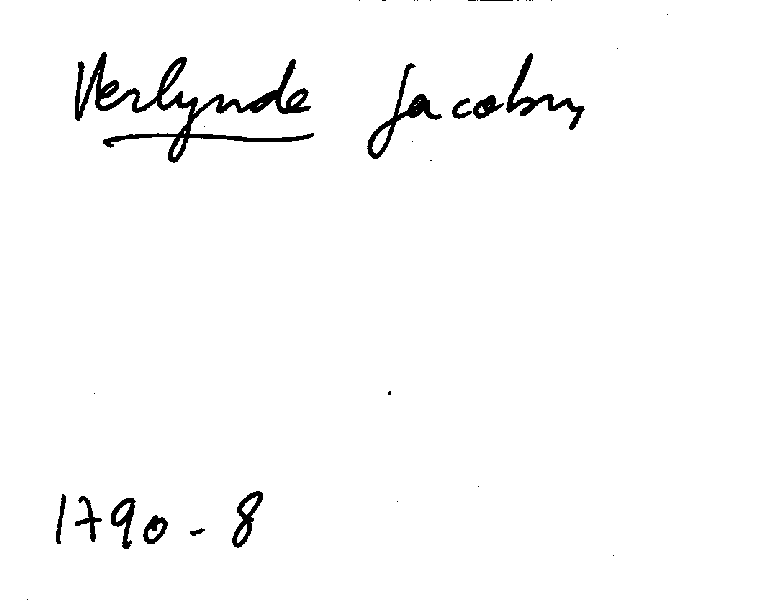 Verlynde Jacobus
1790 - 8